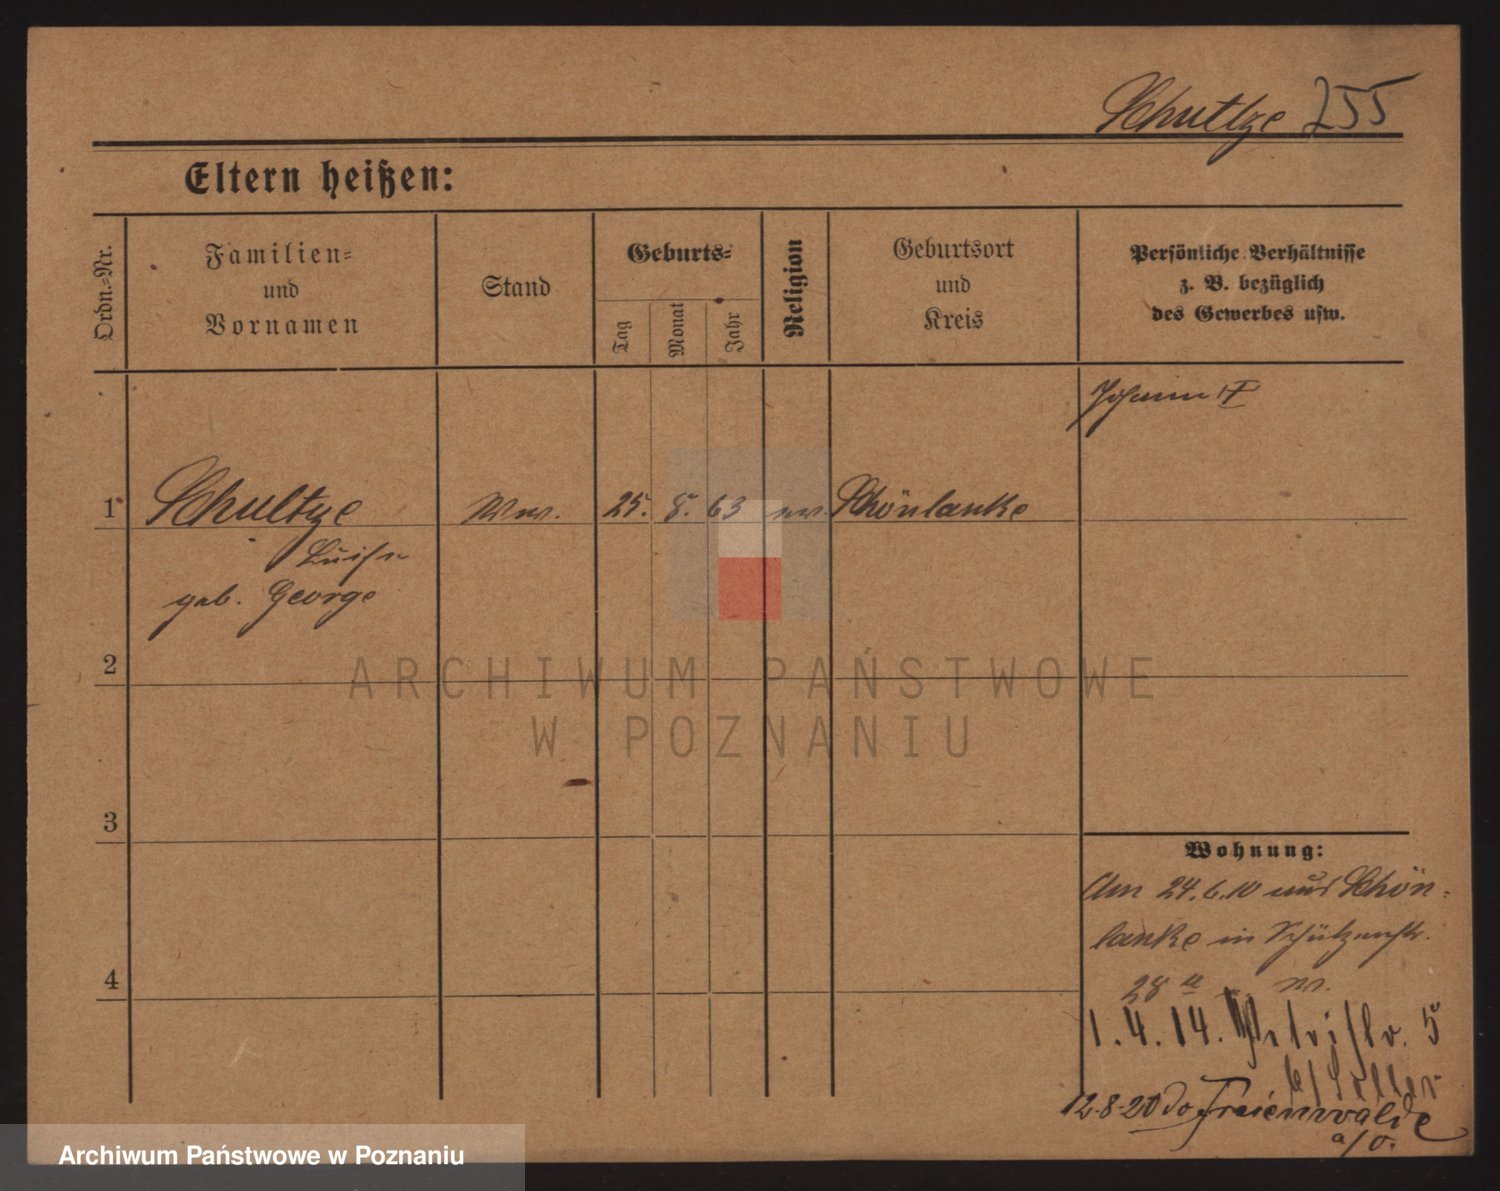 Schultze 755
Eltern heißen:
Ordn.=Nr.
Familien=
und
Vornamen
Stand
Geburts=
Tag
Monat
Jahr
Religion
Geburtsort
und
Kreis
Persönliche Verhältnisse
z. B. bezüglich
des Gewerbes usw.
Johann
1 Schultze Ww. 25. 8. 63 ev. Schönlanke
Luise
geb. George
2
3
4
Wohnung:
Am 24.6.10 aus Schön-
lanke in Schützenstr.
28 a
1.4.14. Petristr. 5
12.8.20 Freienwalde
a/O.
ARCHIWUM PAŃSTWOWE
W POZNANIU
Archiwum Państwowe w Poznaniu